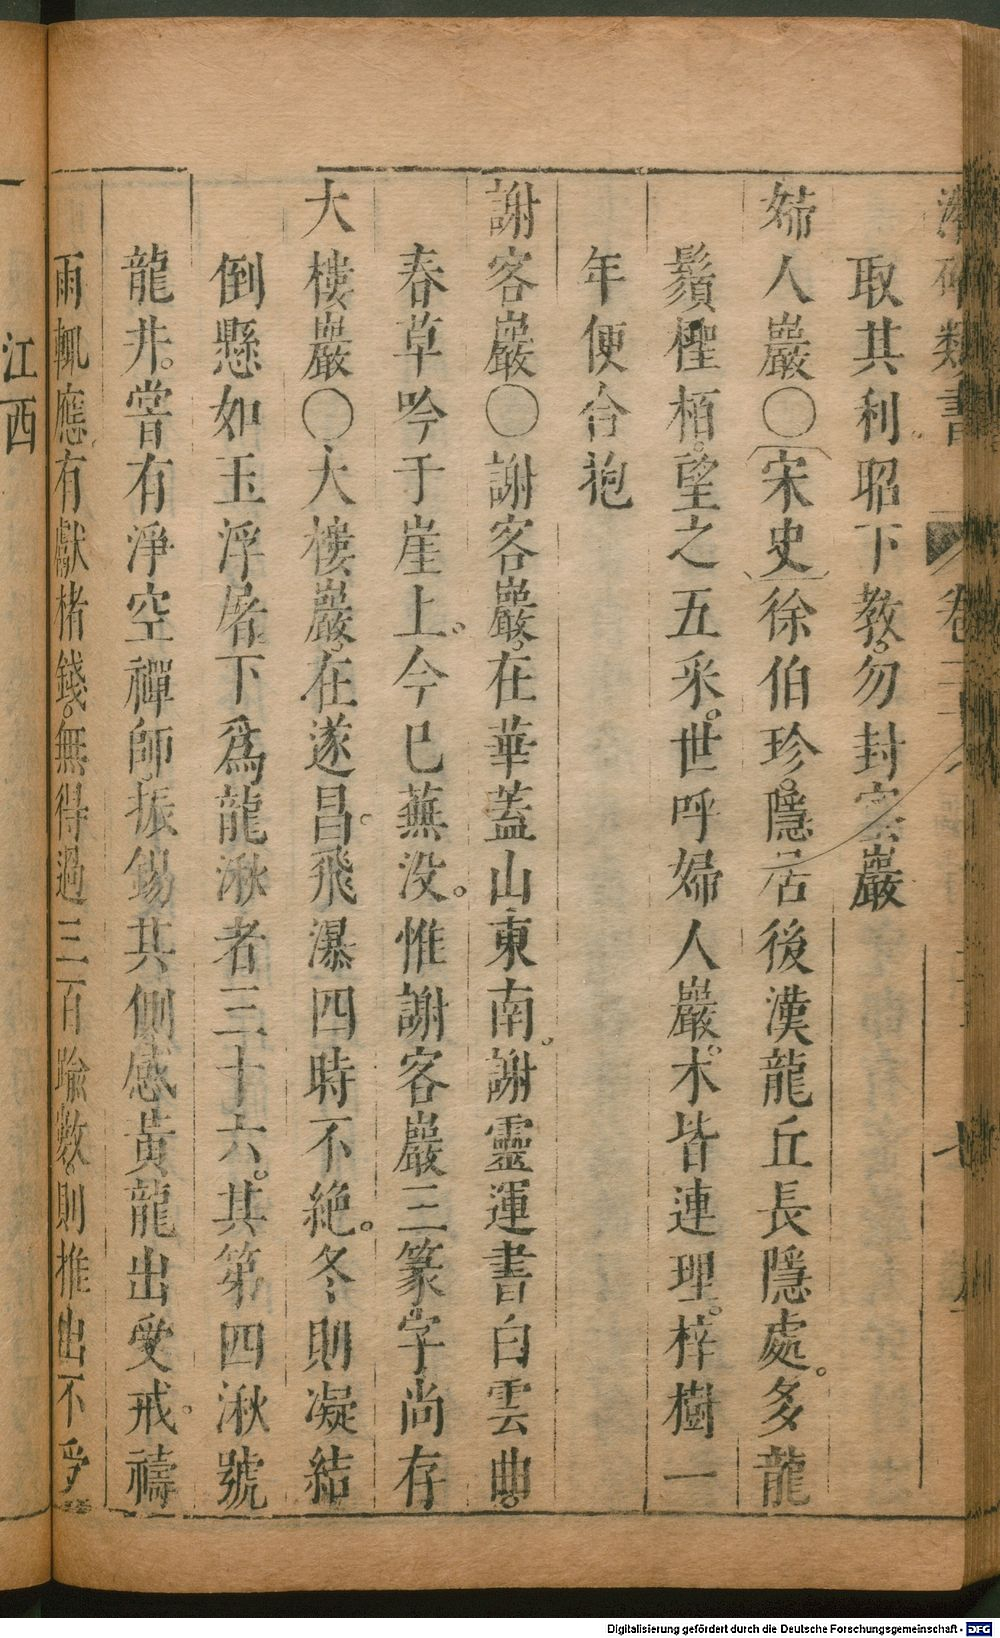 類書 卷二
取其利昭下教勿封室巖
婦人巖〇〔宋史〕徐伯珍隱居後漢龍丘長隱處多龍
鬚檉栢望之五采世呼婦人巖木皆連理梓樹一
年便合抱
謝客巖〇謝客巖在華蓋山東南謝靈運書白雲曲
春草吟于崖上今已蕪没惟謝客巖三篆字尚存
大樓巖〇大樓巖在遂昌飛瀑四時不絶冬則凝結
倒懸如玉浮屠下爲龍湫者三十六其第四湫號
龍井嘗有淨空禪師振錫其側感黃龍出受戒禱
雨輒應有獻楮錢無得過三百踰數則推出不受
江西
Digitalisierung gefördert durch die Deutsche Forschungsgemeinschaft - DFG